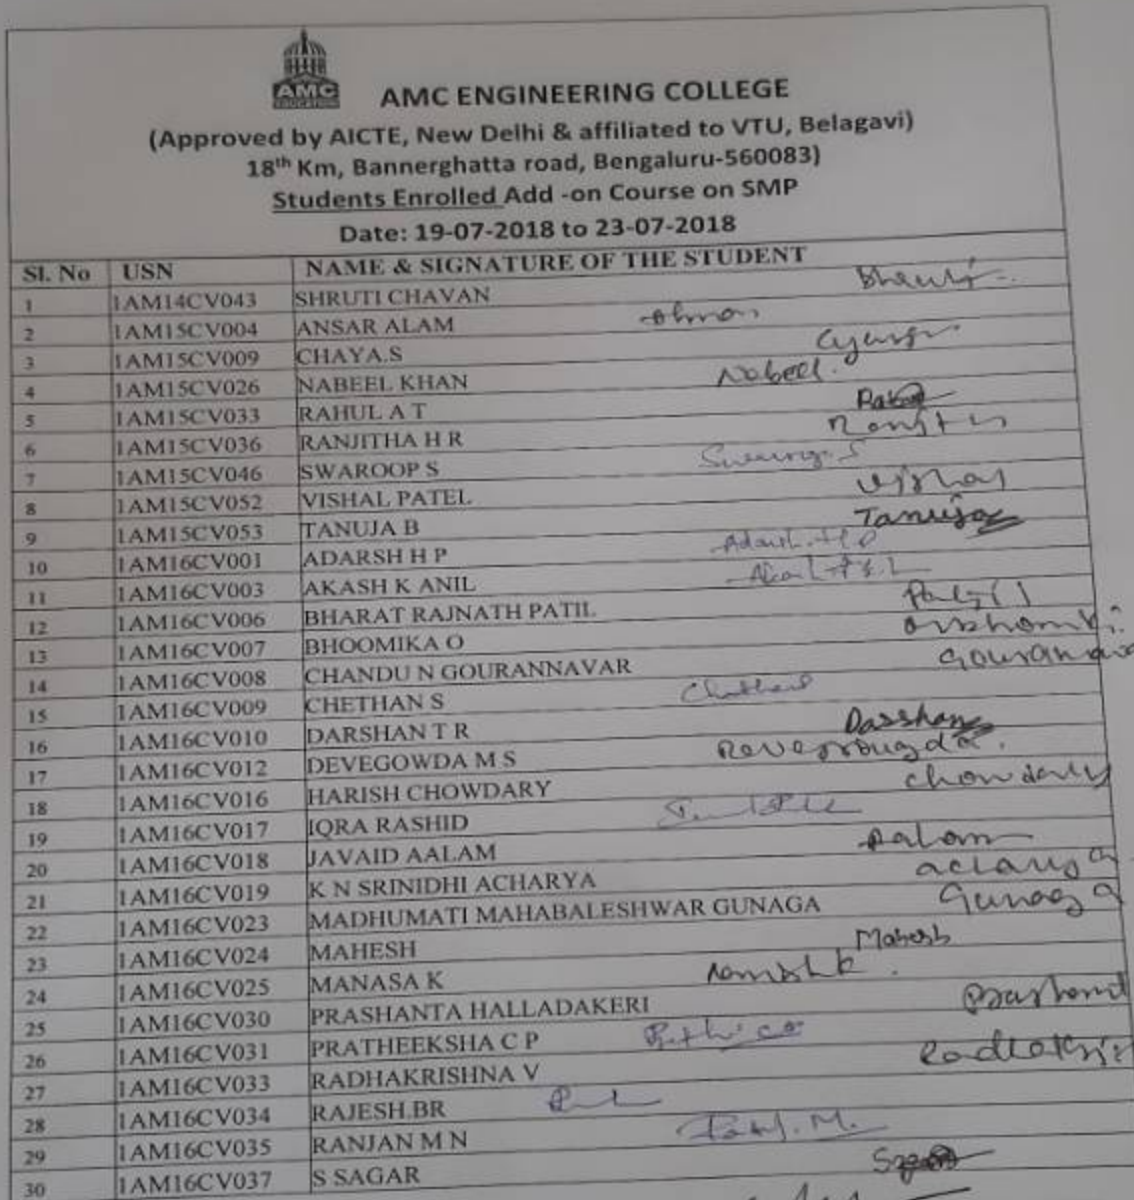 AMC
EDUCATION
AMC ENGINEERING COLLEGE
(Approved by AICTE, New Delhi & affiliated to VTU, Belagavi)
18th Km, Bannerghatta road, Bengaluru-560083)
Students Enrolled Add -on Course on SMP
Date: 19-07-2018 to 23-07-2018
Sl. No USN NAME & SIGNATURE OF THE STUDENT
1 1AM14CV043 SHRUTI CHAVAN
2 1AM15CV004 ANSAR ALAM
3 1AM15CV009 CHAYA.S
4 1AM15CV026 NABEEL KHAN Nabeel.
5 1AM15CV033 RAHUL A T
6 1AM15CV036 RANJITHA H R
7 1AM15CV046 SWAROOP S
8 1AM15CV052 VISHAL PATEL Vishal
9 1AM15CV053 TANUJA B Tanuja
10 1AM16CV001 ADARSH H P Adarsh.H.P
11 1AM16CV003 AKASH K ANIL
12 1AM16CV006 BHARAT RAJNATH PATIL
13 1AM16CV007 BHOOMIKA O
14 1AM16CV008 CHANDU N GOURANNAVAR
15 1AM16CV009 CHETHAN S
16 1AM16CV010 DARSHAN T R Darshan
17 1AM16CV012 DEVEGOWDA M S
18 1AM16CV016 HARISH CHOWDARY chowdary
19 1AM16CV017 IQRA RASHID
20 1AM16CV018 JAVAID AALAM
21 1AM16CV019 K N SRINIDHI ACHARYA
22 1AM16CV023 MADHUMATI MAHABALESHWAR GUNAGA Gunaga
23 1AM16CV024 MAHESH Mahesh
24 1AM16CV025 MANASA K
25 1AM16CV030 PRASHANTA HALLADAKERI
26 1AM16CV031 PRATHEEKSHA C P
27 1AM16CV033 RADHAKRISHNA V
28 1AM16CV034 RAJESH.BR
29 1AM16CV035 RANJAN M N
30 1AM16CV037 S SAGAR